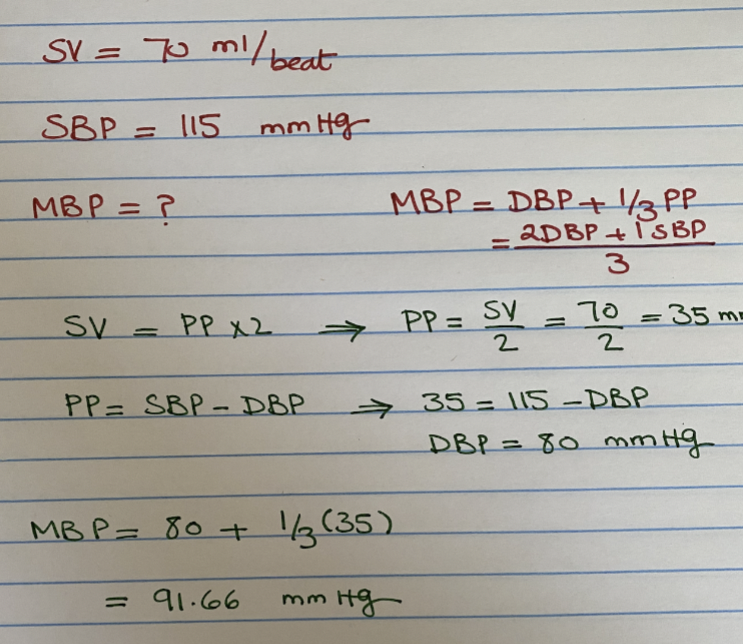 SV = 70 ml/beat
SBP = 115 mmHg
MBP = ? MBP = DBP + 1/3 PP
= 2DBP + 1 SBP / 3
SV = PP x 2 ⇒ PP = SV/2 = 70/2 = 35 mm
PP = SBP - DBP ⇒ 35 = 115 - DBP
DBP = 80 mmHg
MBP = 80 + 1/3 (35)
= 91.66 mmHg